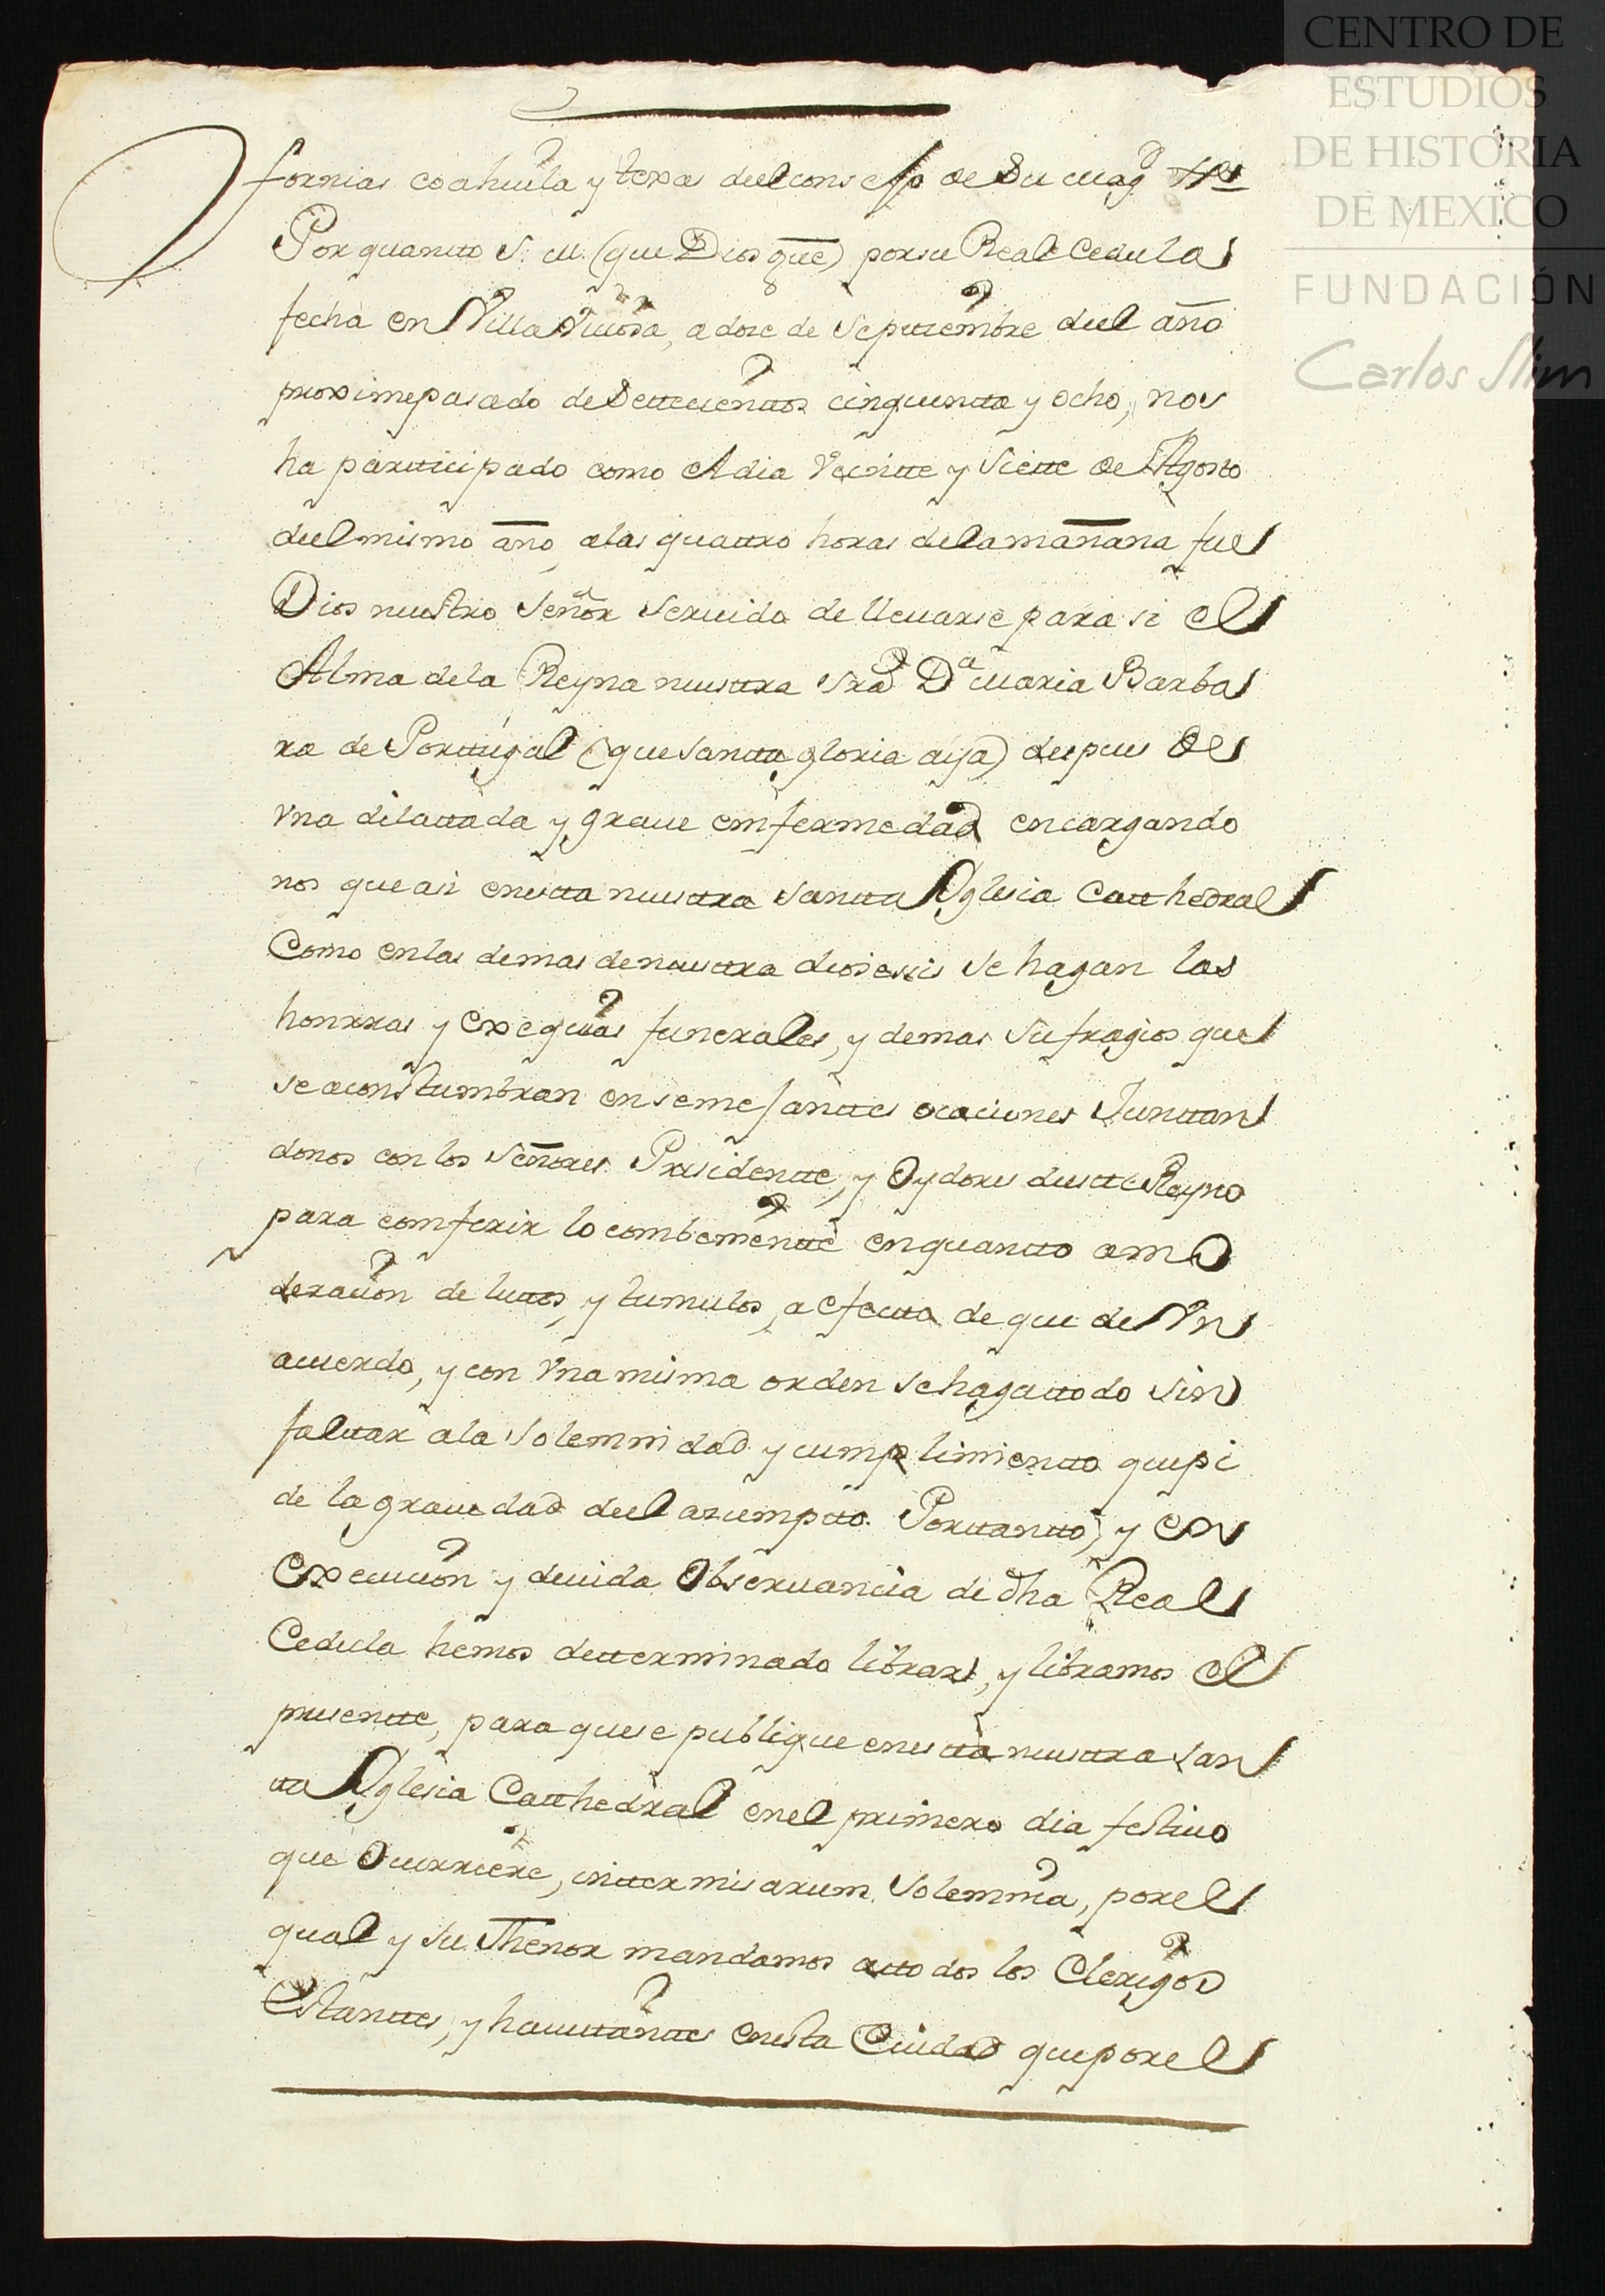 CENTRO DE
ESTUDIOS
DE HISTORIA
DE MEXICO
FUNDACIÓN
Carlos Slim
fornias coahuila y texas del consejo de Su Mag.d
Por quantto S. M. (que Dios gũe) por su Real Cedula
fecha en Villa Viciosa, a dose de Septtiembre del año
proximepasado de Settecienttos cinquentta y ocho, nos
ha partticipado como el dia Veintte y Siette de Agosto
del mismo año, a las quattro horas de la mañana fue
Dios nuestro Señor Seruido de lleuarse para si el
Alma de la Reyna nuesttra Sra D.a Maria Barba
ra de Porttugal (que Santta gloria aija) despues de
Vna dilattada y graue emfermedad encargando
nos que asi en estta nuesttra Santta Yglesia Catthedral
Como en las demas de nuesttra diosessis se hagan las
honrras y exequias funerales, y demas Sufragios que
se aconstumbran en semejanttes ocaciones Junttan
donos con los Señores Presidentte, y Oydores de estte Reyno
para comferir lo combenientte en quantto a mo
deracion de luttos, y tumulos, a efectto de que de Vn
acuerdo, y con Vna misma orden se haga ttodo sin
falttar a la Solemnidad y cumplimientto que pi
de la grauedad del asumptto. Porttantto, y en
execucion y deuida Obseruancia de dha Real
Cedula hemos detterminado librar, y libramos el
presentte, para que se publique en estta nuesttra San
tta Yglesia Catthedral en el primero dia festiuo
que Ocurriere, intter misarum Solemnia, por el
qual y su Thenor mandamos a ttodos los Clerigos
Estanttes, y hauittanttes en esta Ciudad que por el